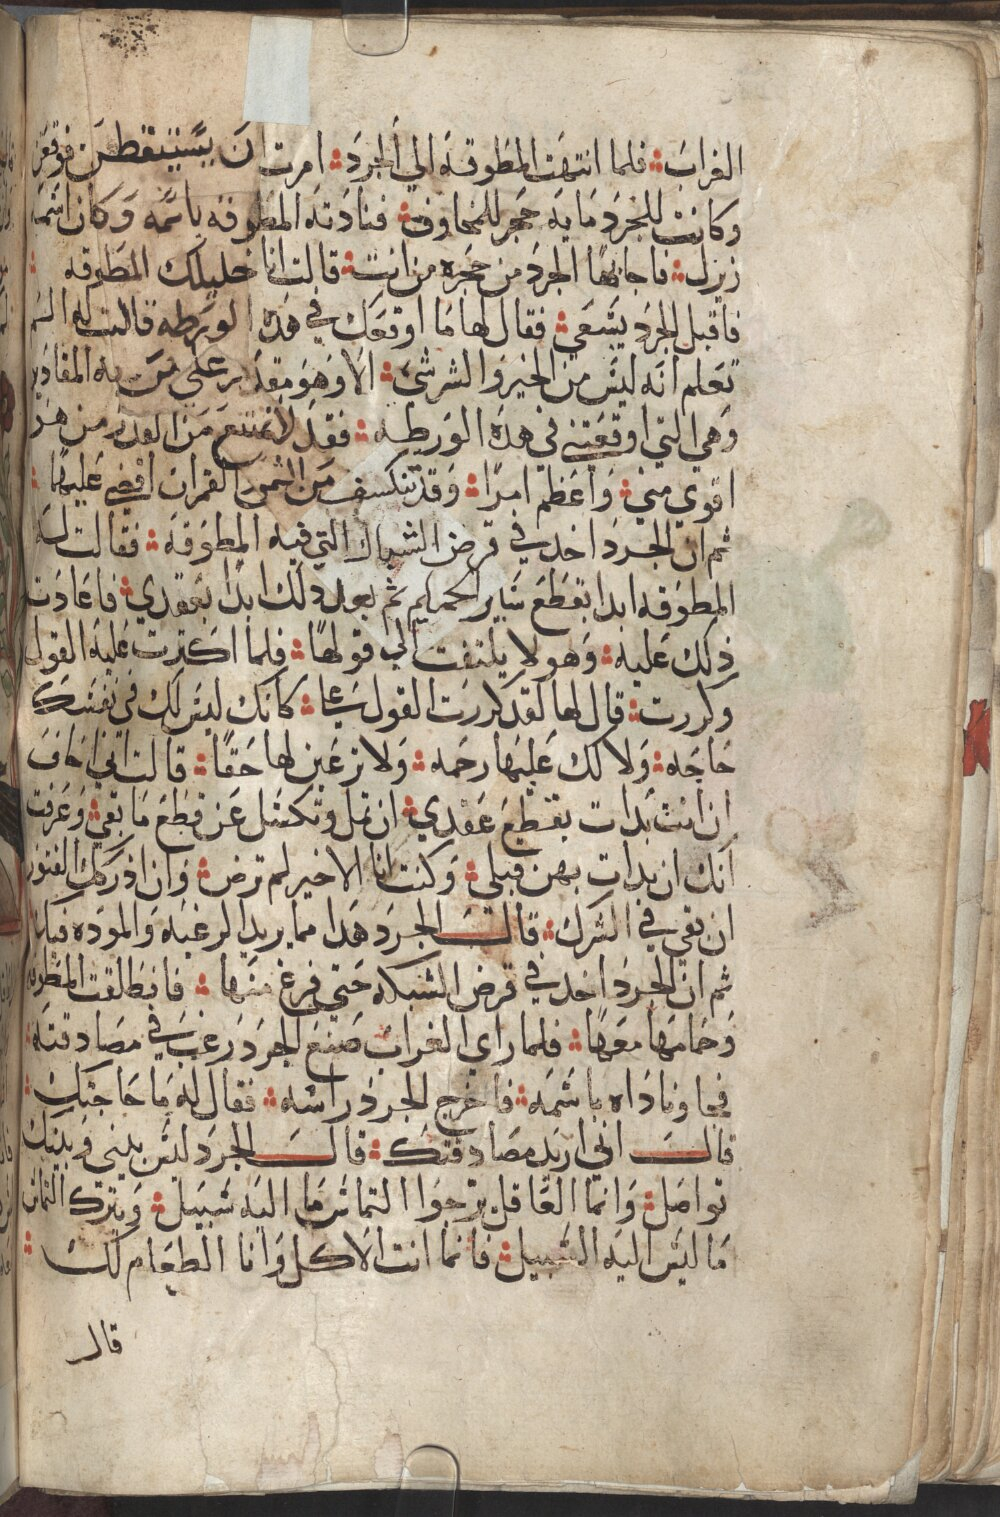 الغراب فلما انتهت المطوقه الي الجرد امرت ان يستنقطن فوقعن
وكانت للجرد مايه حجر للمخاوف فنادته المطوقه باسمه وكان اسمه
زيرك فاجابها الجرد من حجره من انت قالت انا خليلك المطوقه
فاقبل الجرد يسعي فقال لها ما اوقعك في هده الورطه قالت له الم
تعلم انه ليس من الخير والشر شيء الا وهو مقدر علي من المقادير
وهي التي اوقعتني في هده الورطه فقد لا يمتنع من القدر من هو
اقوي مني واعظم امرا وقد تنكسف من الشمس القمر ان اقضي عليها
ثم ان الجرد اخد في قرض الشباك التي فيه المطوقه فقالت له
المطوقه ابدا بقطع ساير الحمام ثم بعد دلك ابدا بعقدي فاعادت
ذلك عليه وهو لا يلتفت الي قولها فلما اكترت عليه القول
وكررت قال لها لقد كررت القول علي كانك ليس لك في نفسك
حاجه ولا لك عليها رحمه ولا ترعين لها حقا قالت اني اخاف
ان انت بدات بقطع عقدي ان تمل وتكسل عن قطع ما بقي وعرفت
انك ان بدات بهن قبلي وكنت انا الاخير لم ترض وان ادركك الفتور
ان بقي في الشرك قالت الجرد هدا مما يريد الرغبه والموده فيك
ثم ان الجرد اخد في قرض الشبكه حتي فرغ منها فانطلقت المطوقه
وحمامها معها فلما راي الغراب صنع الجرد رغب في مصادقته
فجا وناداه باسمه فاخرج الجرد راسه فقال له ما حاجتك
قال اني اريد مصادقتك قال الجرد ليس بيني وبينك
تواصل وانما العاقل يرجوا التماس ما اليه سبيل ويترك التماس
ما ليس اليه السبيل فانما انت الاكل وانا الطعام لك
قال